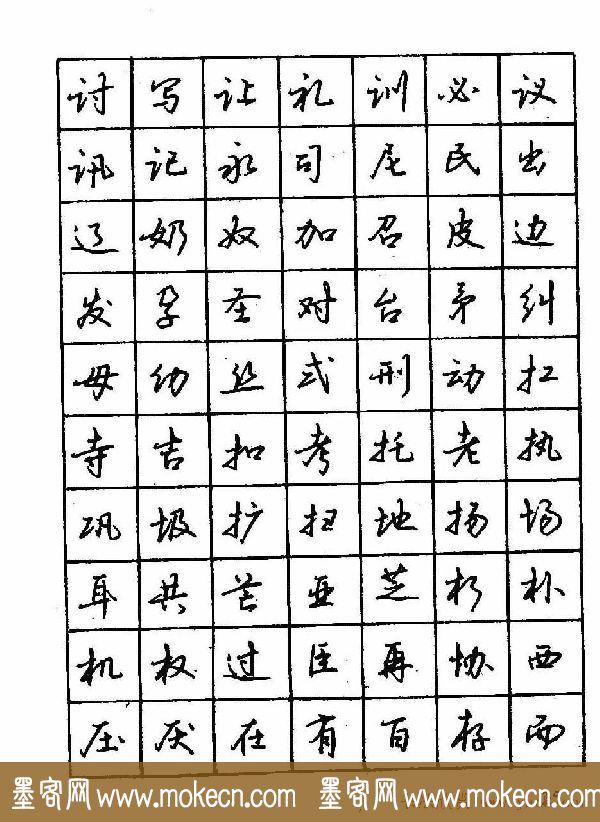 讨 写 让 礼 训 必 议
讯 记 永 司 尼 民 出
辽 奶 奴 加 召 皮 边
发 孕 圣 对 台 矛 纠
母 幼 丝 式 刑 动 扛
寺 吉 扣 考 托 老 执
巩 圾 扩 扫 地 扬 场
耳 共 芒 亚 芝 朽 朴
机 权 过 臣 再 协 西
压 厌 在 有 百 存 而
墨客网 www.mokecn.com 墨客网 www.mokecn.com